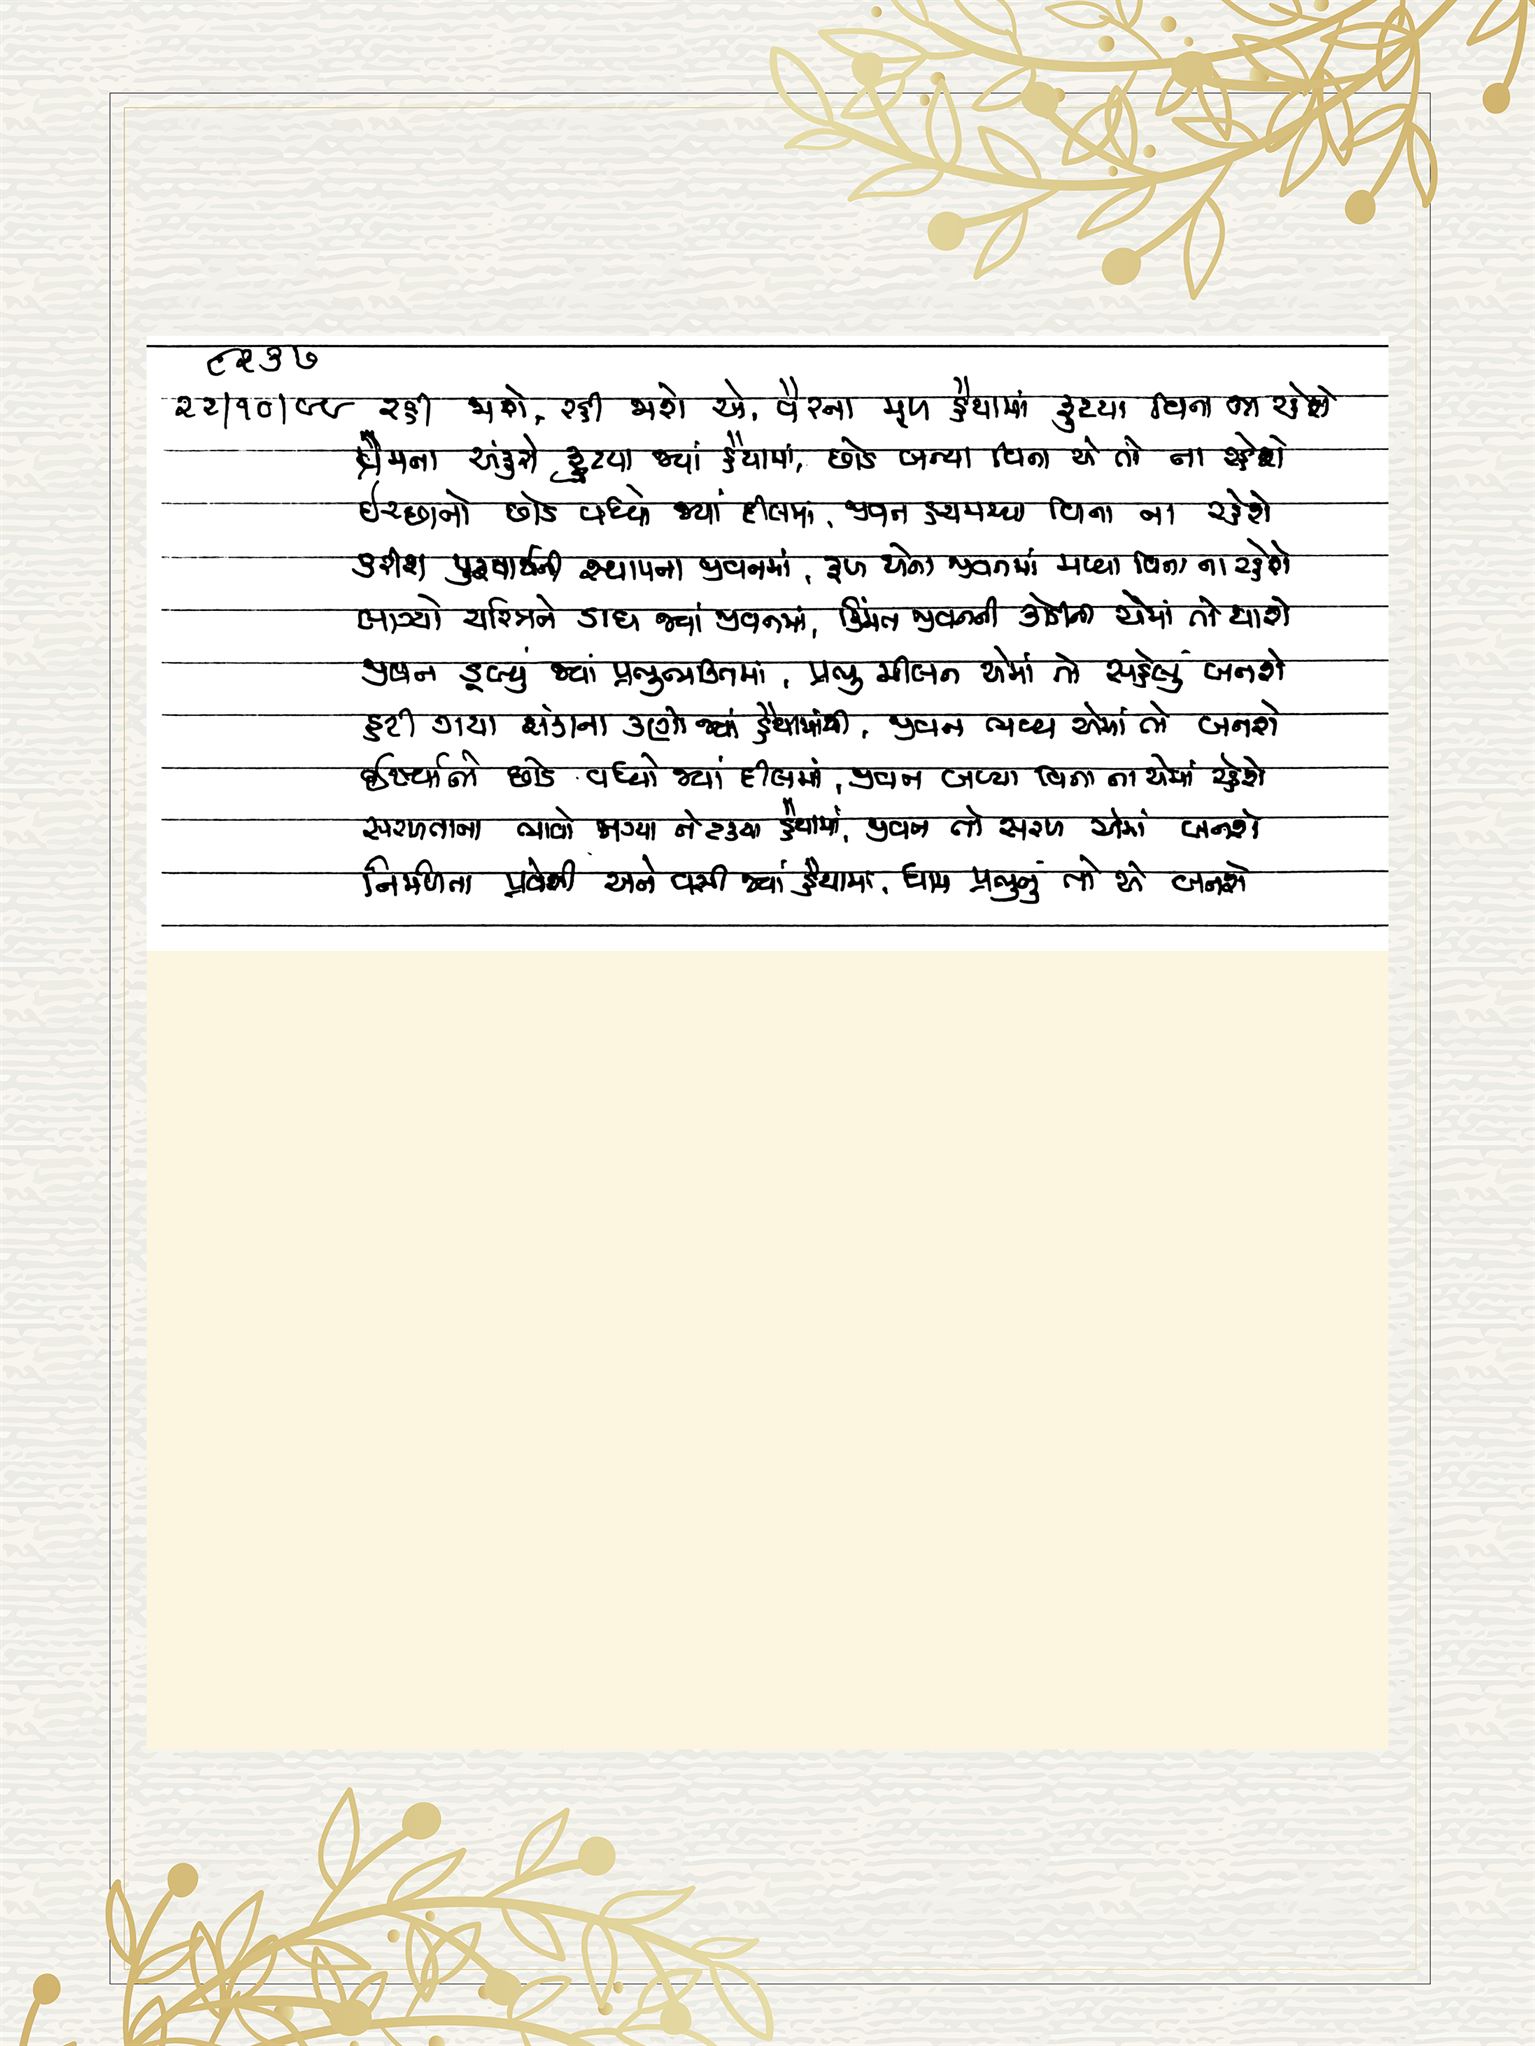 ૮૨૩૭
૨૨/૧૦/૯૯ રહી જાશે, રહી જાશે એ, વૈરના મૂળ હૈયામાં ફુટયા વિના ના રહેશે
પ્રેમના અંકુરો ફુટયા જ્યાં હૈયામાં, છોડ બન્યા વિના એ તો ના રહેશે
ઈચ્છાનો છોડ વધ્યો જ્યાં દીલમાં, જીવન વિના ના રહેશે
કરીશ પુરુષાર્થની સ્થાપના જીવનમાં, ફળ એના જીવનમાં મળ્યા વિના ના રહેશે
લાગ્યો ચરિત્રને ડાઘ જ્યાં જીવનમાં, કિંમત જીવનની કોડીની એમાં તો થાશે
જીવન ડૂબ્યું જ્યાં પ્રભુભક્તિમાં, પ્રભુ મીલન એમાં તો સહેલું બનશે
હટી ગયા શંકાના કણો જ્યાં હૈયામાંથી, જીવન ભવ્ય એમાં તો બનશે
ઈર્ષ્યાનો છોડ વધ્યો જ્યાં દીલમાં, જીવન બળ્યા વિના ના એમાં રહેશે
સરળતાના ભાવો જાગ્યા ને ટક્યા હૈયામાં, જીવન તો સરળ એમાં બનશે
નિર્મળતા પ્રવેશી અને વસી જ્યાં હૈયામાં, ધામ પ્રભુનું તો એ બનશે